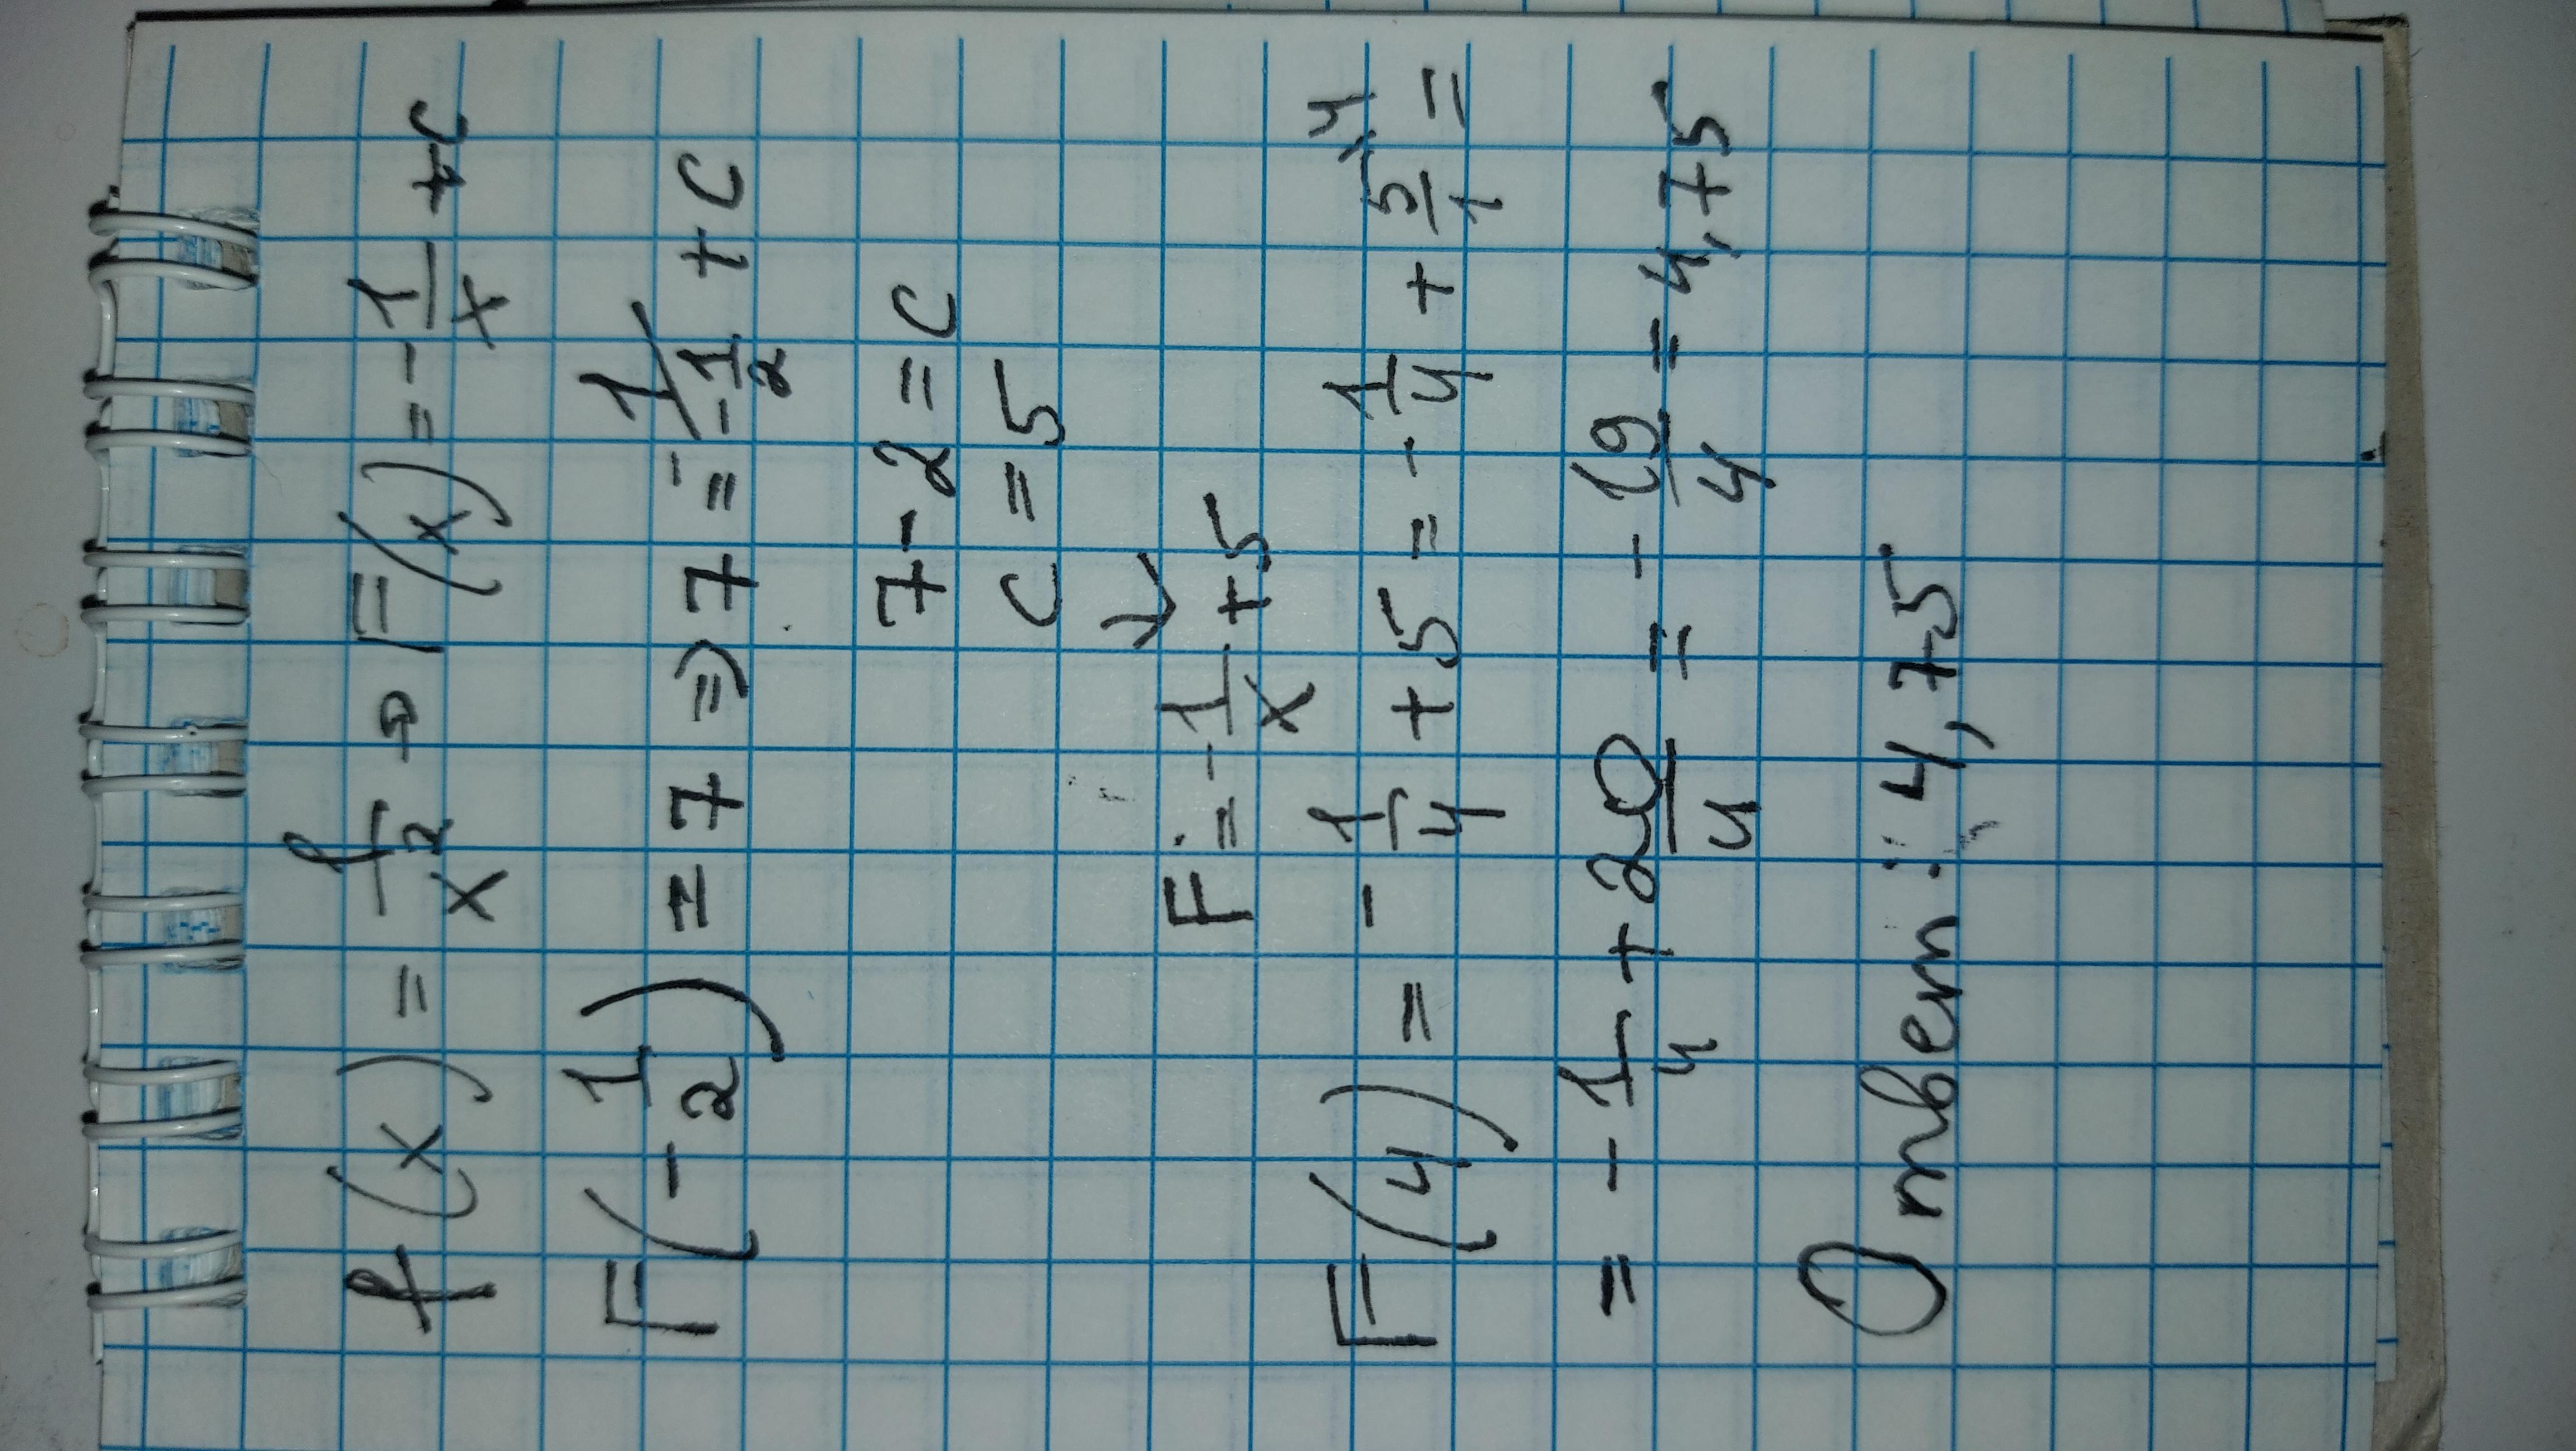 f(x) = 1/x² → F(x) = -1/x + c
F(-1/2) = 7 => 7 = -1/-1/2 + c
7-2 = c
c = 5
↓
F = -1/x + 5
F(4) = -1/4 + 5 = -1/4 + 5/1 \4 =
= -1/4 + 20/4 = -19/4 = 4,75
Ответ: 4,75